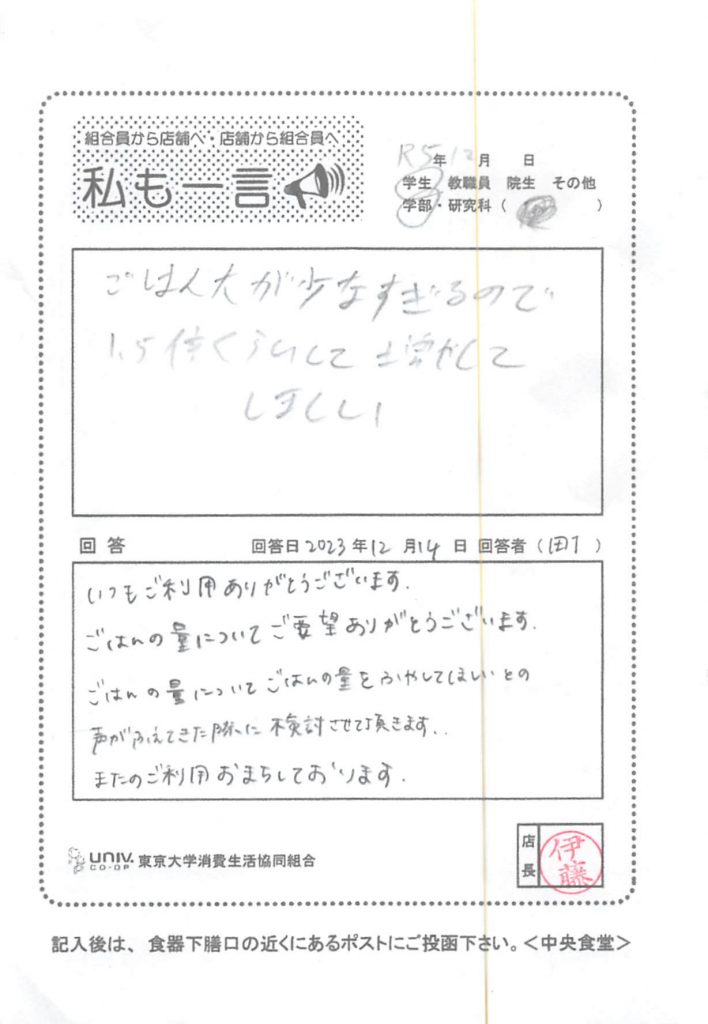 組合員から店舗へ・店舗から組合員へ
私も一言
R5年12月 日
学生 教職員 院生 その他
学部・研究科( )
ごはん大が少なすぎるので
1.5倍くらいして増やして
ほしい
回答 回答日2023年12月14日 回答者( )
いつもご利用ありがとうございます.
ごはんの量についてご要望ありがとうございます.
ごはんの量についてごはんの量をふやしてほしいとの
声がふえてきた際に検討させて頂きます..
またのご利用おまちしております.
UNIV. CO-OP 東京大学消費生活協同組合
店長 伊藤
記入後は、食器下膳口の近くにあるポストにご投函下さい。<中央食堂>